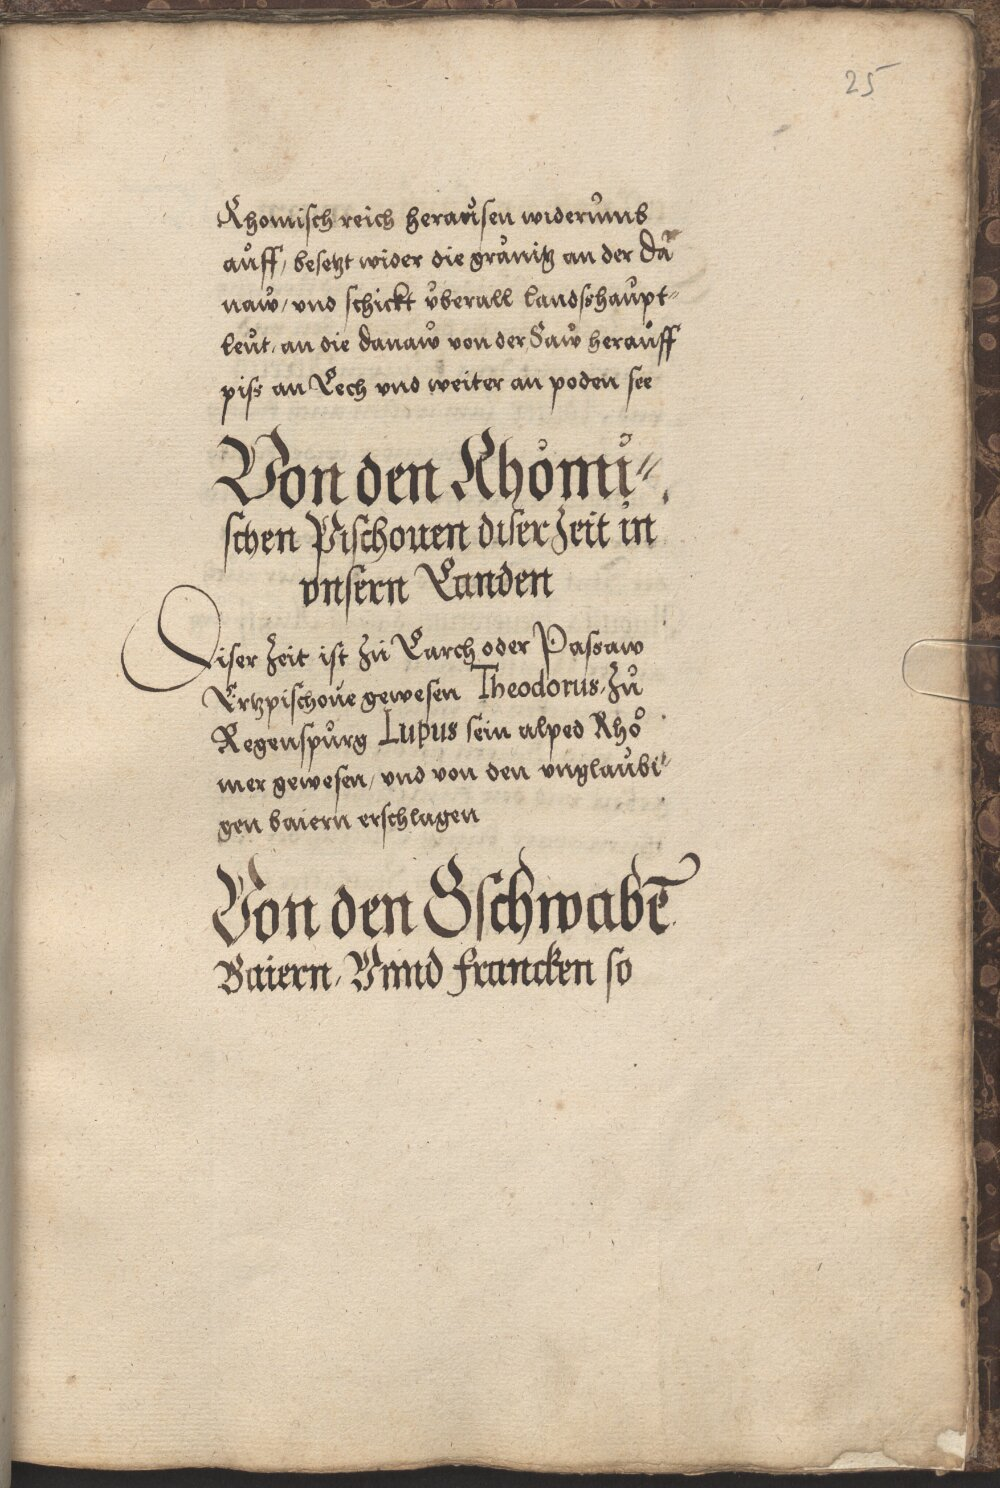 25
Rhomisch reich heraussen widerumb
auff, besetzt wider die gränitz an der Da
naw, vnd schickt vberall landsshaupt-
leut, an die danaw von der Saw herauff
piss an Lech vnd weiter an poden see
Von den Rhömi-
schen Pischouen diser Zeit in
vnsern Landen
Diser Zeit ist zu Larch oder Passaw
Ertzpischoue gewesen Theodorus, Zu
Regenspurg Lupus sein alped Rhö
mer gewesen, vnd von den vnglaubi-
gen baiern erschlagen
Von den Gschwabē
Baiern, Vnnd francken so